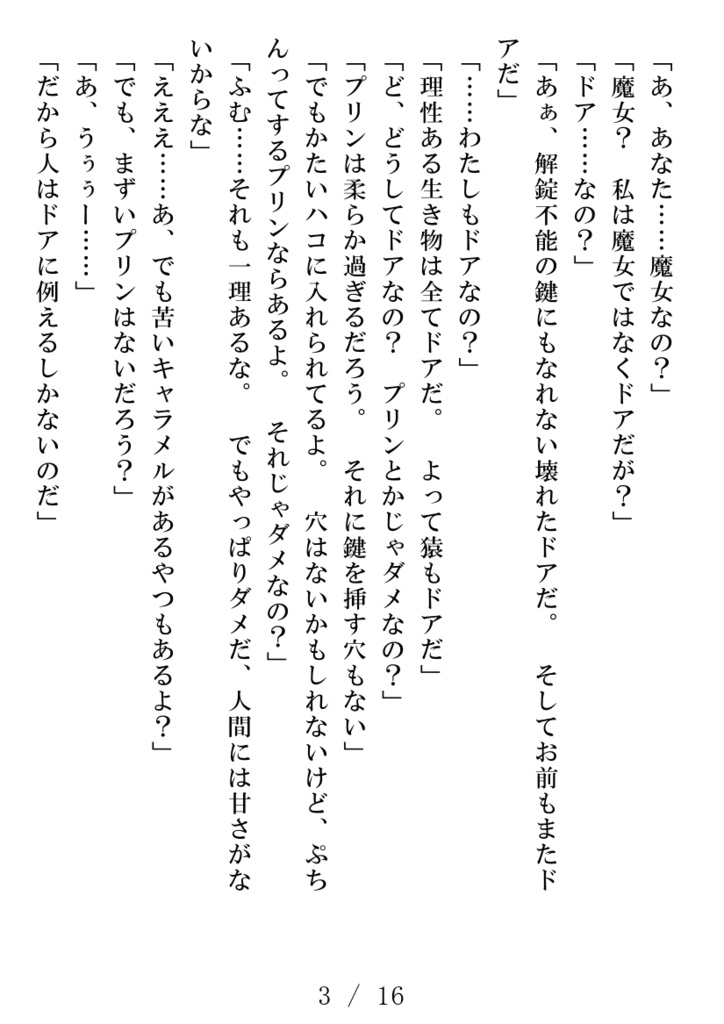 「あ、あなた……魔女なの？」
「魔女？　私は魔女ではなくドアだが？」
「ドア……なの？」
「あぁ、解錠不能の鍵にもなれない壊れたドアだ。　そしてお前もまたド
アだ」
「……わたしもドアなの？」
「理性ある生き物は全てドアだ。　よって猿もドアだ」
「ど、どうしてドアなの？　プリンとかじゃダメなの？」
「プリンは柔らか過ぎるだろう。　それに鍵を挿す穴もない」
「でもかたいハコに入れられてるよ。　穴はないかもしれないけど、ぷち
んってするプリンならあるよ。　それじゃダメなの？」
「ふむ……それも一理あるな。　でもやっぱりダメだ、人間には甘さがな
いからな」
「えええ……あ、でも苦いキャラメルがあるやつもあるよ？」
「でも、まずいプリンはないだろう？」
「あ、うぅぅー……」
「だから人はドアに例えるしかないのだ」
3 / 16